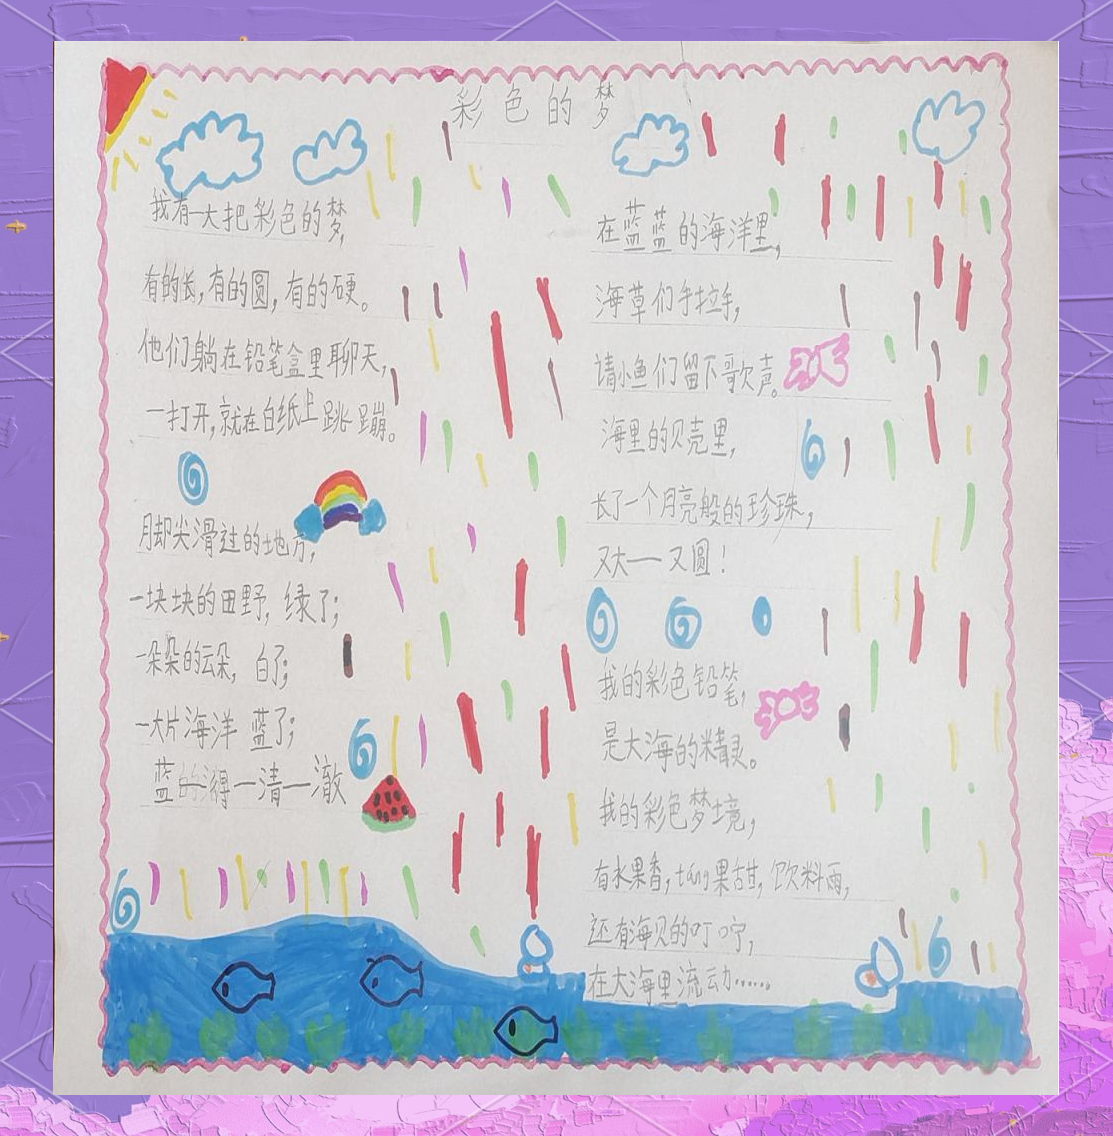 彩色的梦
我有一大把彩色的梦,
有的长,有的圆,有的硬。
他们躺在铅笔盒里聊天,
一打开,就在白纸上跳蹦。
脚尖滑过的地方,
一块块的田野,绿了;
一朵朵的云朵,白了;
一大片海洋 蓝了;
蓝的得一清一澈
在蓝蓝的海洋里,
海草们手拉手,
请小鱼们留下歌声。
海里的贝壳里,
长了一个月亮般的珍珠,
又大——又圆!
我的彩色铅笔,
是大海的精灵。
我的彩色梦境,
有水果香,táng果甜,饮料雨,
还有海贝的叮咛,
在大海里流动……